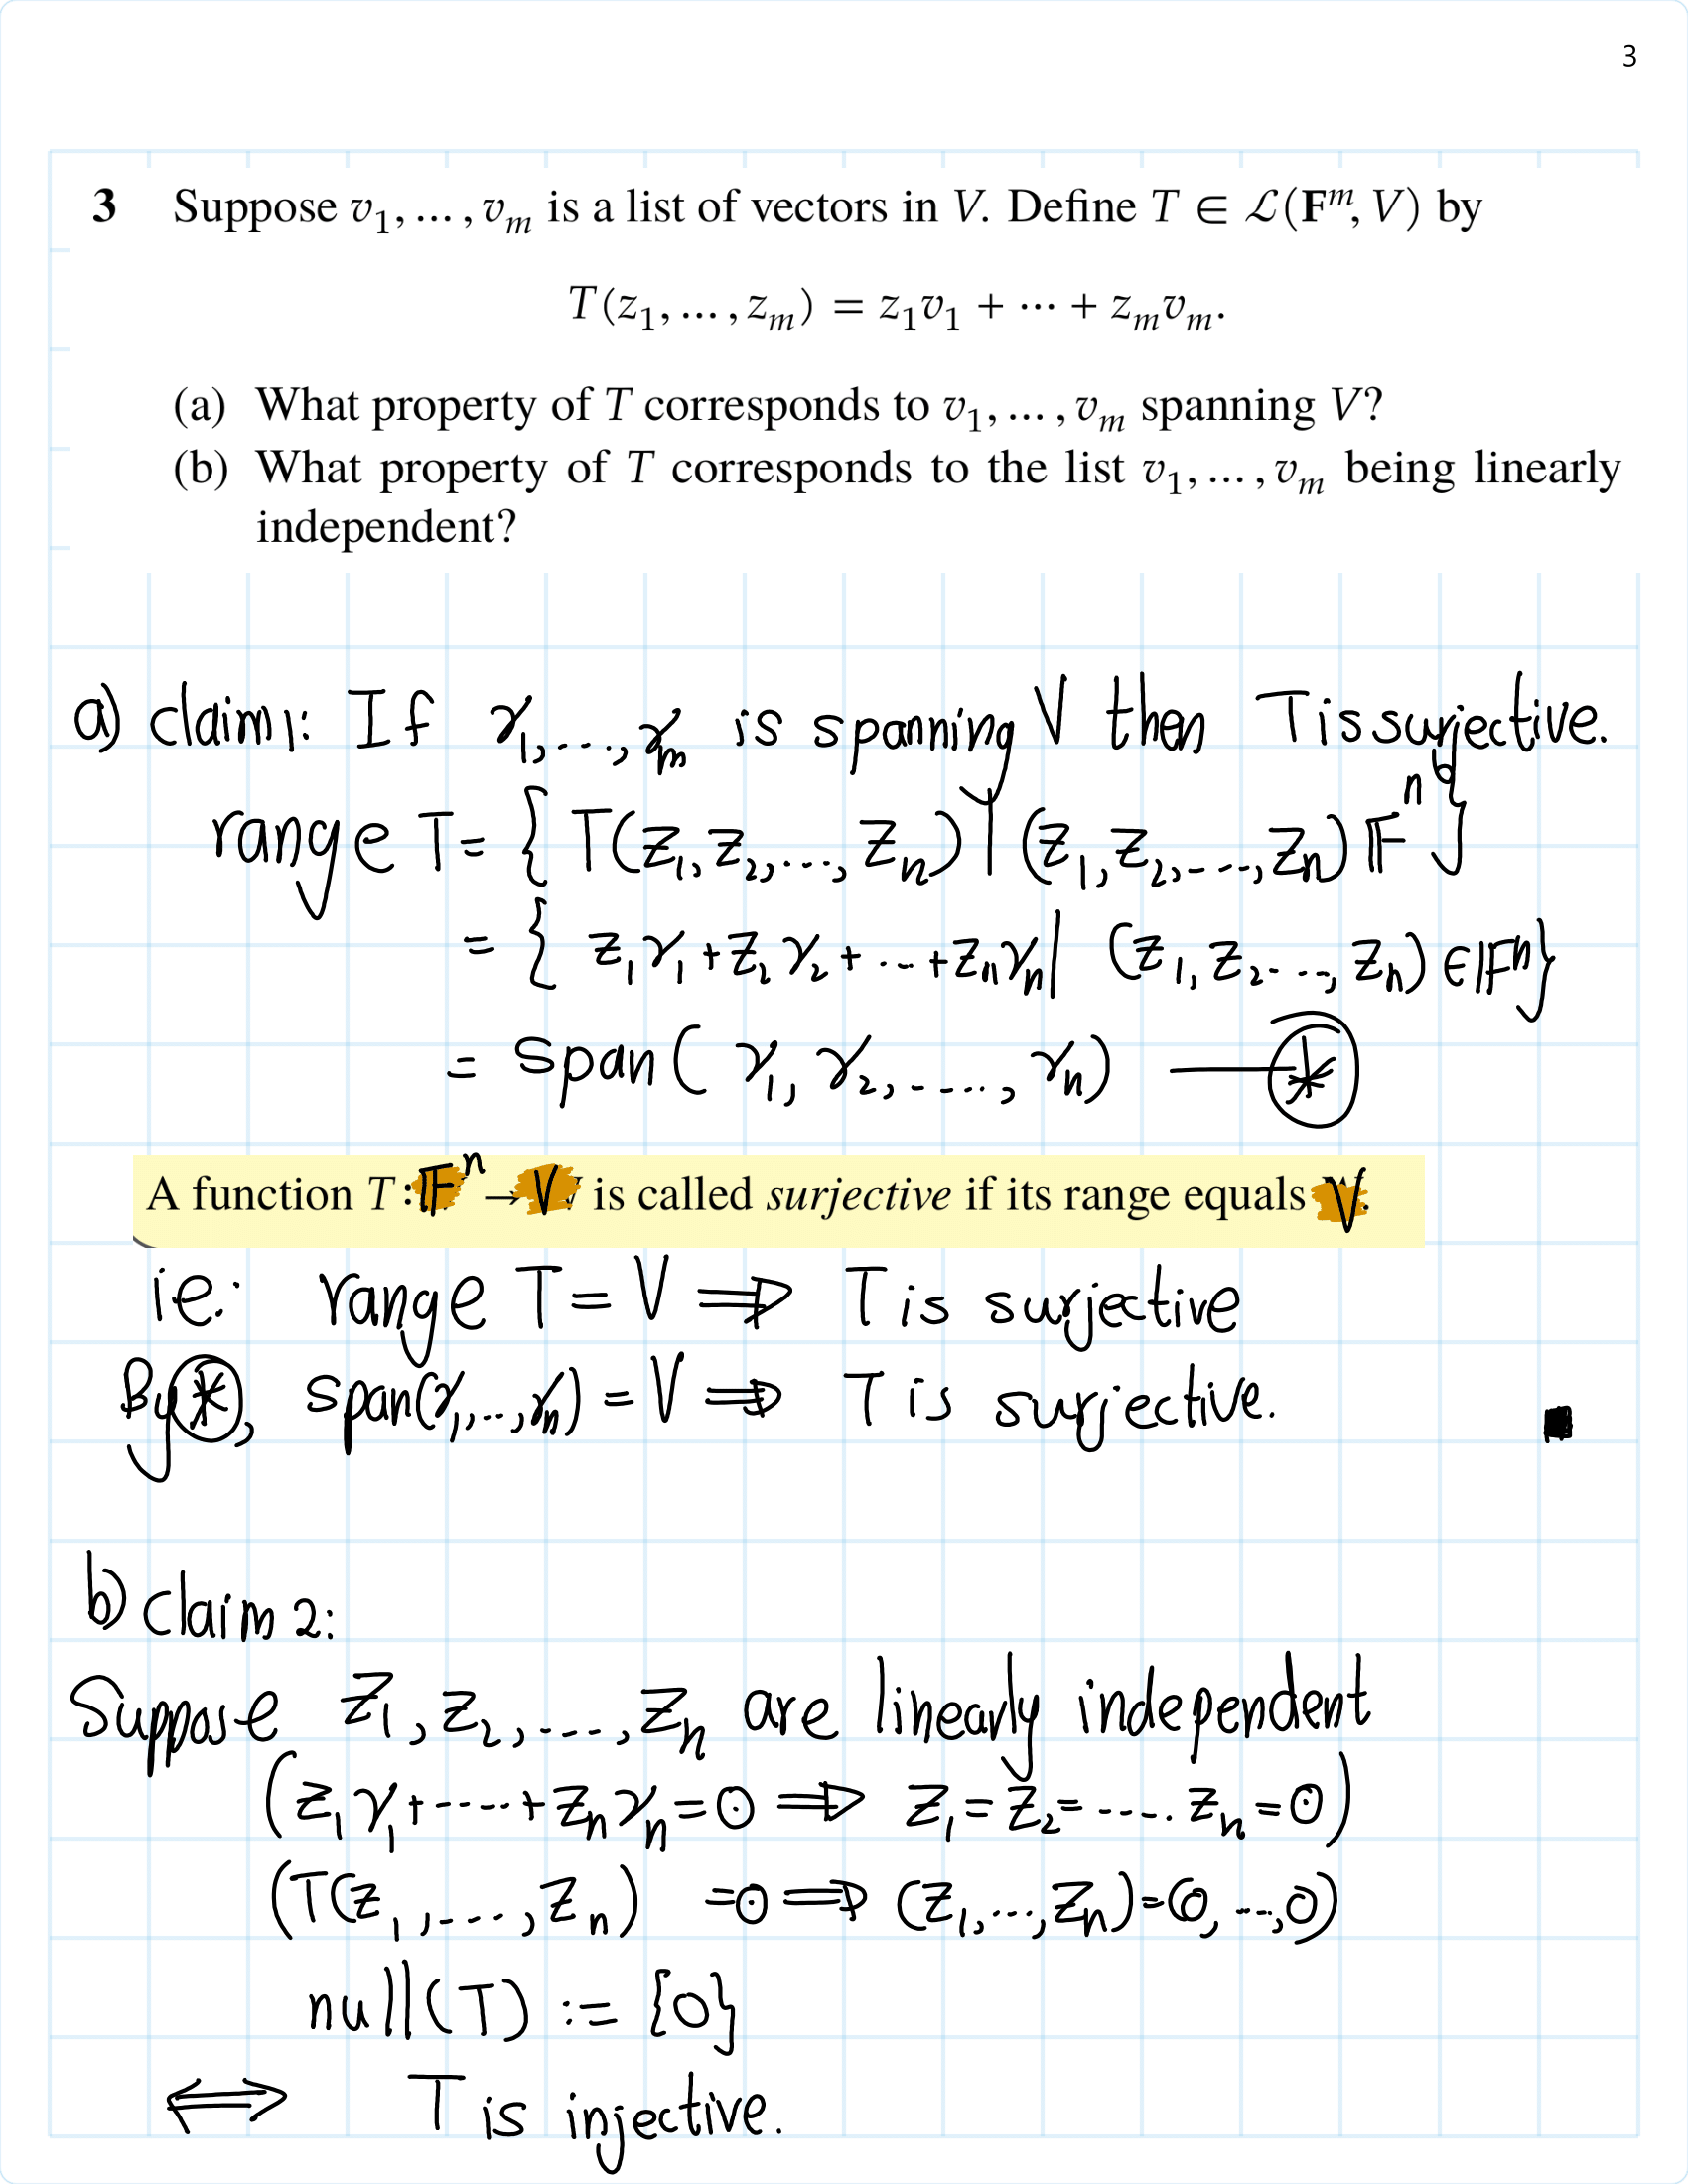 3
3 Suppose v₁, … , vₘ is a list of vectors in V. Define T ∈ ℒ(𝐅ᵐ, V) by
T(z₁, … , zₘ) = z₁v₁ + ⋯ + zₘvₘ.
(a) What property of T corresponds to v₁, … , vₘ spanning V?
(b) What property of T corresponds to the list v₁, … , vₘ being linearly
independent?
a) claim 1: If v₁, ..., vₘ is spanning V then T is surjective.
range T = { T(z₁, z₂, ..., zₙ) | (z₁, z₂, ..., zₙ) 𝔽ⁿ }
= { z₁v₁ + z₂v₂ + ... + zₙvₙ | (z₁, z₂ ..., zₙ) ∈ 𝔽ⁿ }
= span( v₁, v₂, ...., vₙ ) — ⊛
A function T : 𝔽ⁿ → V is called surjective if its range equals V.
ie: range T = V ⟹ T is surjective
By ⊛, span(v₁, ..., vₙ) = V ⟹ T is surjective. ■
b) claim 2:
Suppose z₁, z₂, ...., zₙ are linearly independent
(z₁v₁ + ···· + zₙvₙ = 0 ⟹ z₁ = z₂ = .... zₙ = 0)
(T(z₁, ...., zₙ) = 0 ⟹ (z₁, ..., zₙ) = (0, ..., 0)
null(T) := {0}
⟺ T is injective.